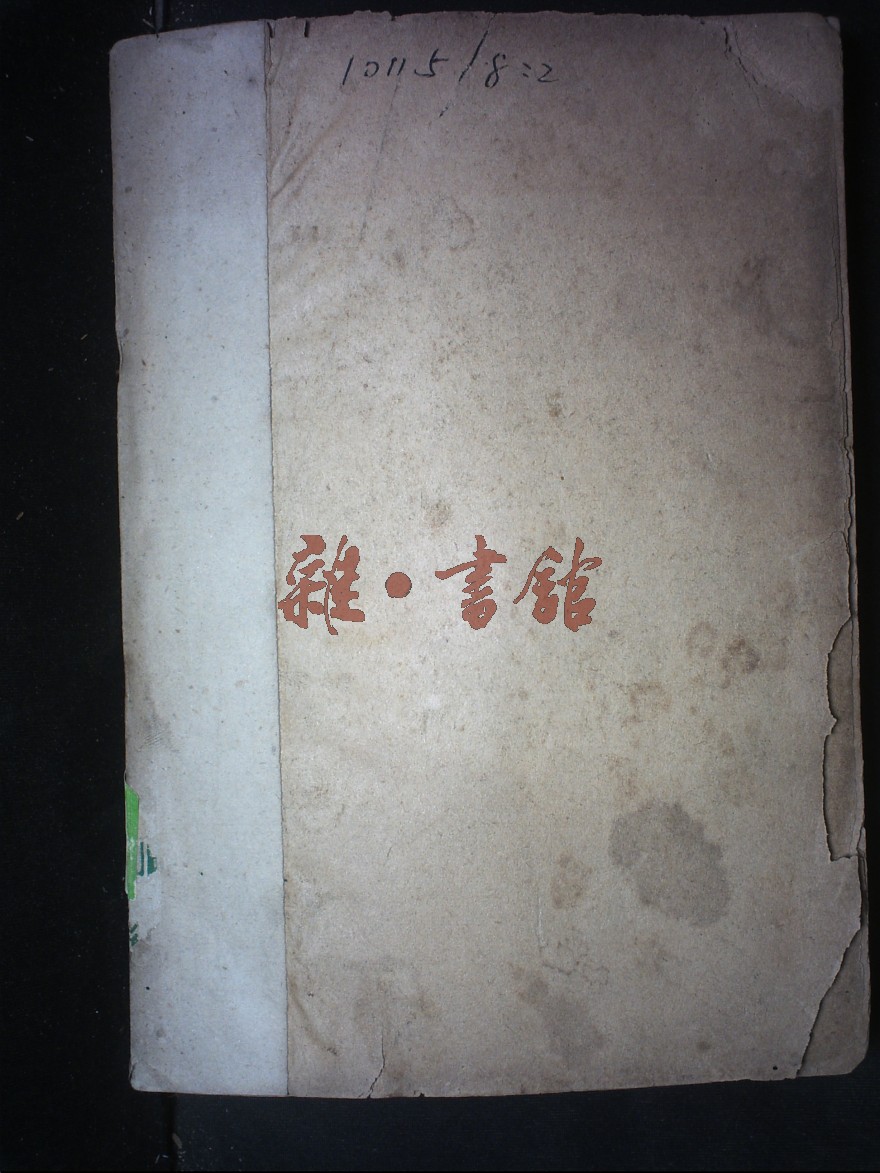 10115/8:2
雜·書館